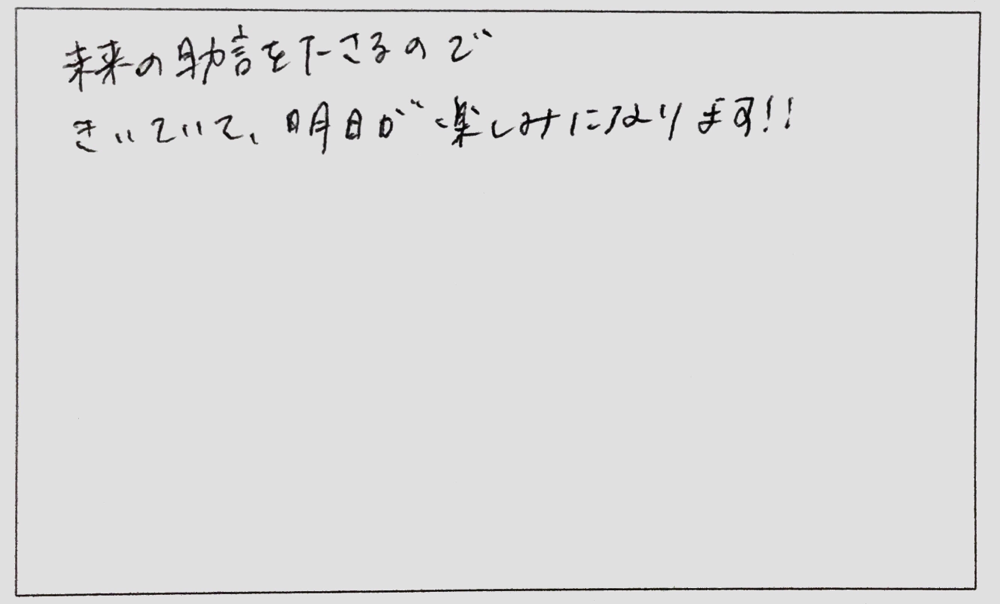 未来の助言を下さるので
きいていて、明日が楽しみになります!!